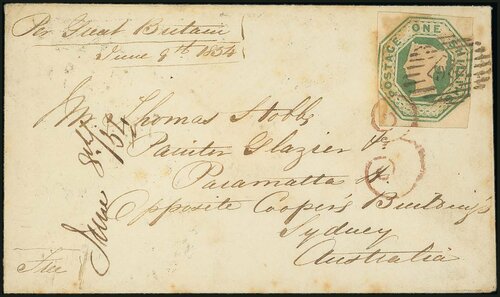 Per Great Britain
June 9th 1854
POSTAGE ONE SHILLING
Mr Thomas Stobbs
Painter Glazier &c
Paramatta St
Opposite Cooper's Buildings
Sydney
Australia
June
/54